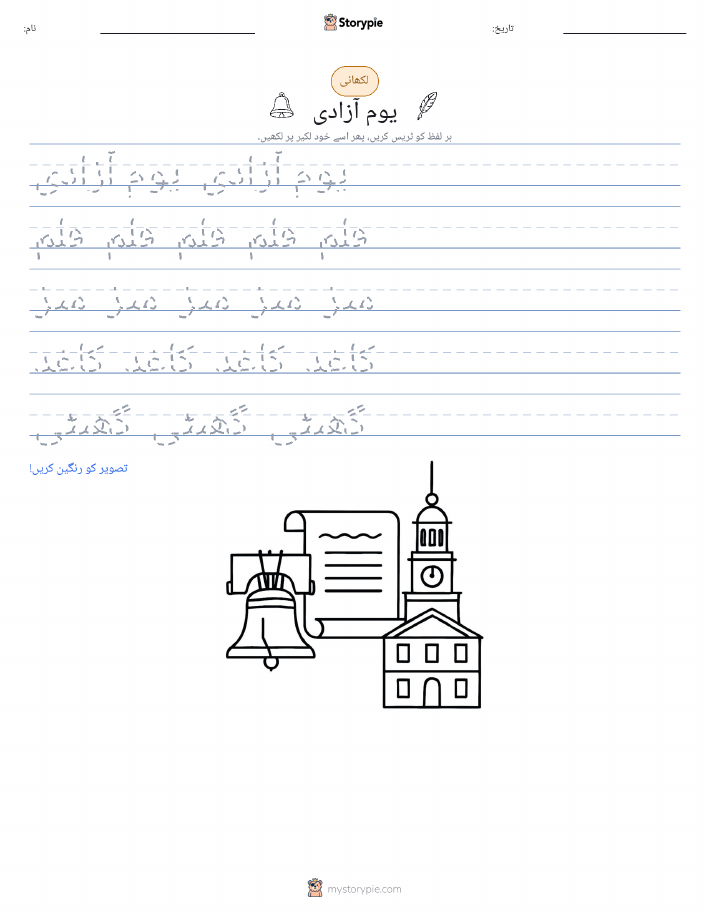 Storypie
نام:
تاریخ:
لکھائی
یوم آزادی
ہر لفظ کو ٹریس کریں، پھر اسے خود لکیر پر لکھیں۔
یوم آزادی یوم آزادی
قلم قلم قلم قلم قلم
میز میز میز میز میز
کاغذ کاغذ کاغذ کاغذ
گھنٹی گھنٹی گھنٹی
تصویر کو رنگین کریں!
mystorypie.com